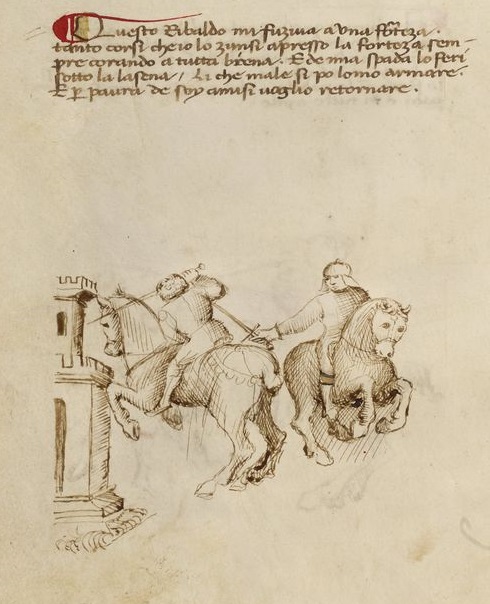 Questo Ribaldo mi fuziva a una forteza.
tanto corsi che io lo zunsi apresso la forteza sem-
pre corando a tutta brena. E de mia spada lo feri
sotto la lasena / Li che male si po lomo armare.
E p paura de soy amisi voglio retornare.